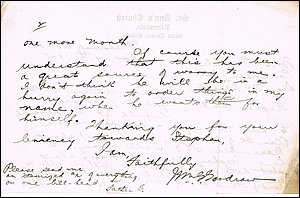 St. Ann's Church
one more month.
Of course you must
understand that this has been
a great source of worry to me.
I don't think he will be in a
hurry again to order things in my
name, when he wants them for
himself. Thanking you for your
leniency towards Stephen,
I am
Faithfully
Please send me
an itemized of everything
on one bill-head.